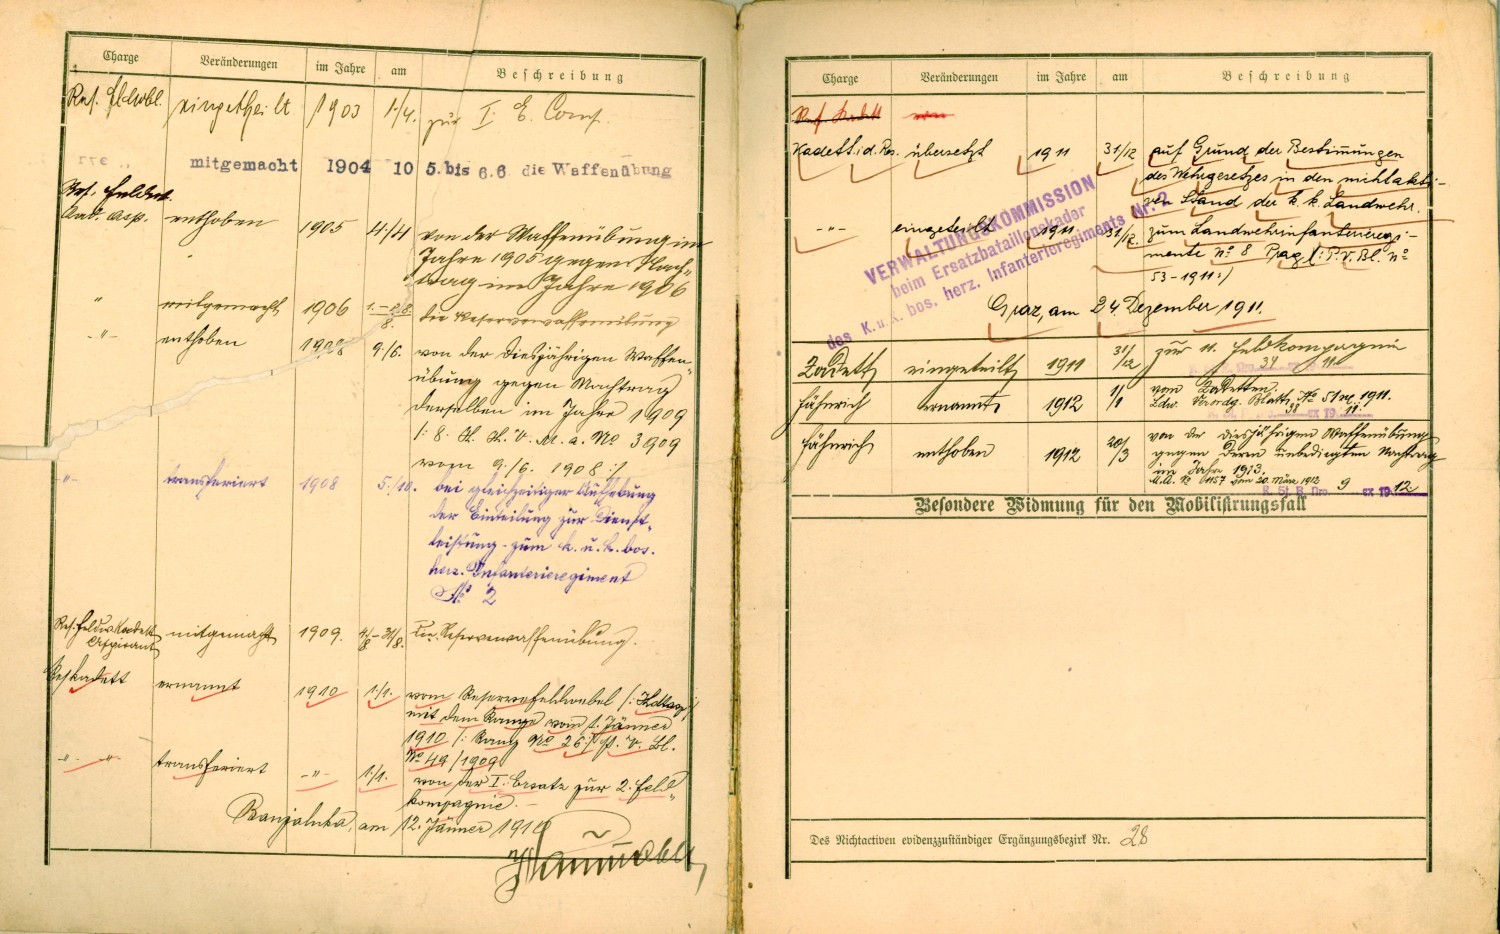 Charge Veränderungen im Jahre am Beschreibung
Res. Feldwbl. eingetheilt 1903 1./4. zur I. E. Comp.
mitgemacht 1904 10 5. bis 6.6 die Waffenübung
Res. Feldw.
Kad. Asp. enthoben 1905 4./4 von der Waffenübung im
Jahre 1905 gegen Nach-
trag im Jahre 1906
" mitgemacht 1906 die Reservewaffenübung
-"- enthoben 1908 9./6. von der diesjährigen Waffen-
übung gegen Nachtrag
derselben im Jahre 1909
3909
vom 9./6. 1908 :/
-"- transferiert 1908 5./10. bei gleichzeitiger Aufhebung
der Einteilung zur Dienst-
leistung zum k. u. k. bos.
herz. Infanterieregiment
No 2
Res. Feldw. Kadett
Aspirant mitgemacht 1909. 4/8 – 31/8. die Reservewaffenübung.
Res Kadett ernannt 1910 1./1. vom Reservefeldwebel
mit dem Range vom 1. Jänner
1910 /: Rang No 26 :/ P. V. Bl.
No 49 / 1909
-"- -"- transferiert -"- 1./1. von der I. Ersatz zur 2. Feld-
kompagnie. –
Banjaluka, am 12. Jänner 1910
Charge Veränderungen im Jahre am Beschreibung
Res. Kadett
Kadett i. d. Res. übersetzt 1911 31/12 auf Grund der Bestimmungen
des Wehrgesetzes in den nichtakti-
ven Stand der k. k. Landwehr.
-"- eingeteilt 1911 31/12. zum Landwehrinfanterieregi-
mente No 8 Prag /: P. V. Bl. No
53 – 1911 :/
VERWALTUNGSKOMMISSION
beim Ersatzbataillonskader
des K. u. K. bos. herz. Infanterieregiments Nr. 2
Graz, am 24. Dezember 1911.
Kadett eingeteilt 1911 31/12 zur 11. Feldkompagnie
Fähnrich ernannt 1912 1/1 vom Kadetten.
Ldw. Verordg. Blatt, No 51 1911.
38 ex 19 11.
Fähnrich enthoben 1912 20/3 von der diesjährigen Waffenübung
gegen deren unbedingten Nachtrag
im Jahre 1913.
vom 20. März 1912
R. St. B. Nro. 9 ex 1912
Besondere Widmung für den Mobilisierungsfall
Des Nichtactiven evidenzzuständiger Ergänzungsbezirk Nr. 28